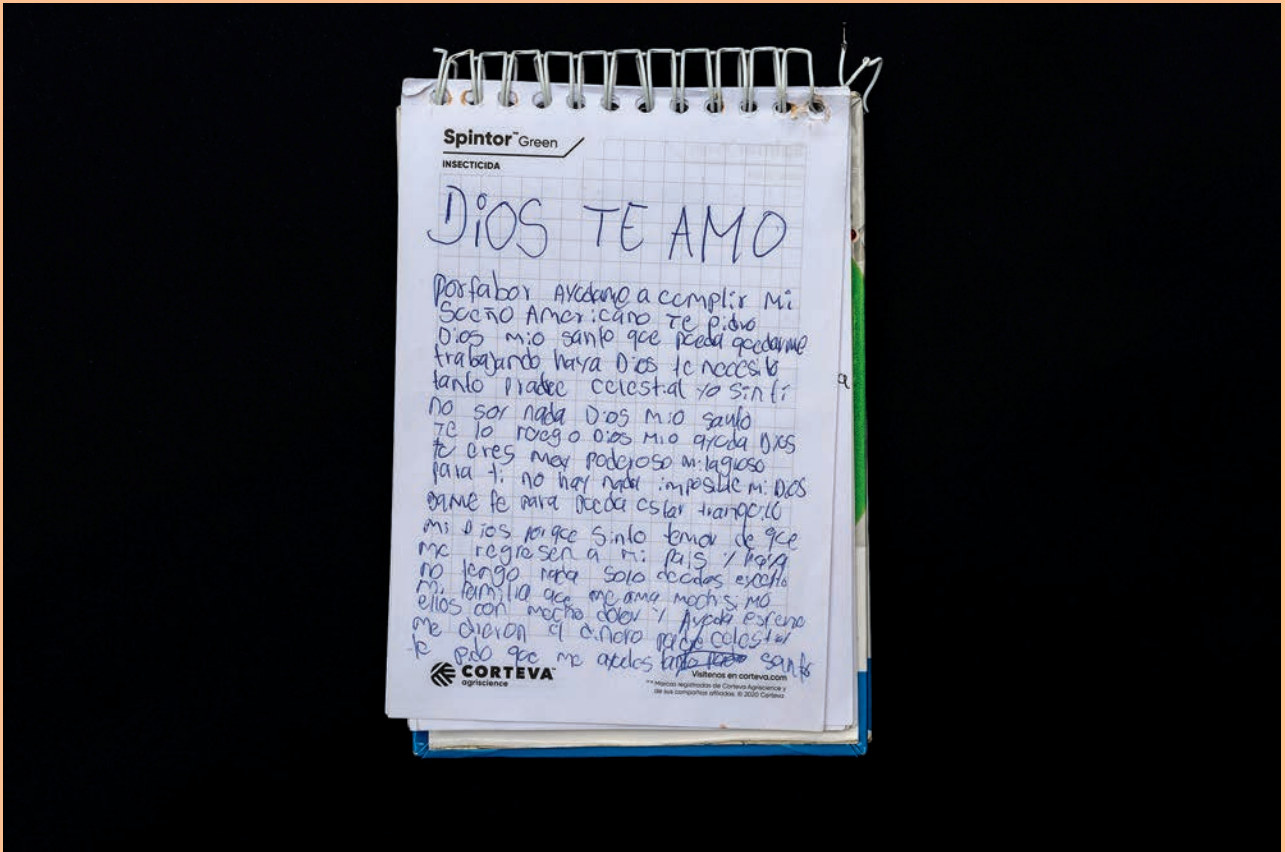 Spintor™ Green
INSECTICIDA
DiOS TE AMO
porfabor Aycdame a ccmplir Mi
Sceño Americano Te pido
Dios mio santo que pceda qcedarme
trabajando haya Dios te necesito
tanto Pradec celestial yo sin ti
no soy nada Dios Mio santo
Te lo rcego Dios Mio aycda Dios
tc eres mcy poderoso milagroso
para ti no hay nada imposible mi DiOS
dame fe para pceda estar tranqcilo
mi Dios porqce Sinto temor de qce
me regresen a mi pais y haya
no tengo nada solo decdas excepto
mi familia qce me ama mcchisimo
ellos con mccho dolor y Aycda
me dieron el dinero padre celestial
te pido qce me aycdes santo
CORTEVA™
agriscience
Visítenos en corteva.com
™® Marcas registradas de Corteva Agriscience y
de sus compañías afiliadas. © 2020 Corteva
a